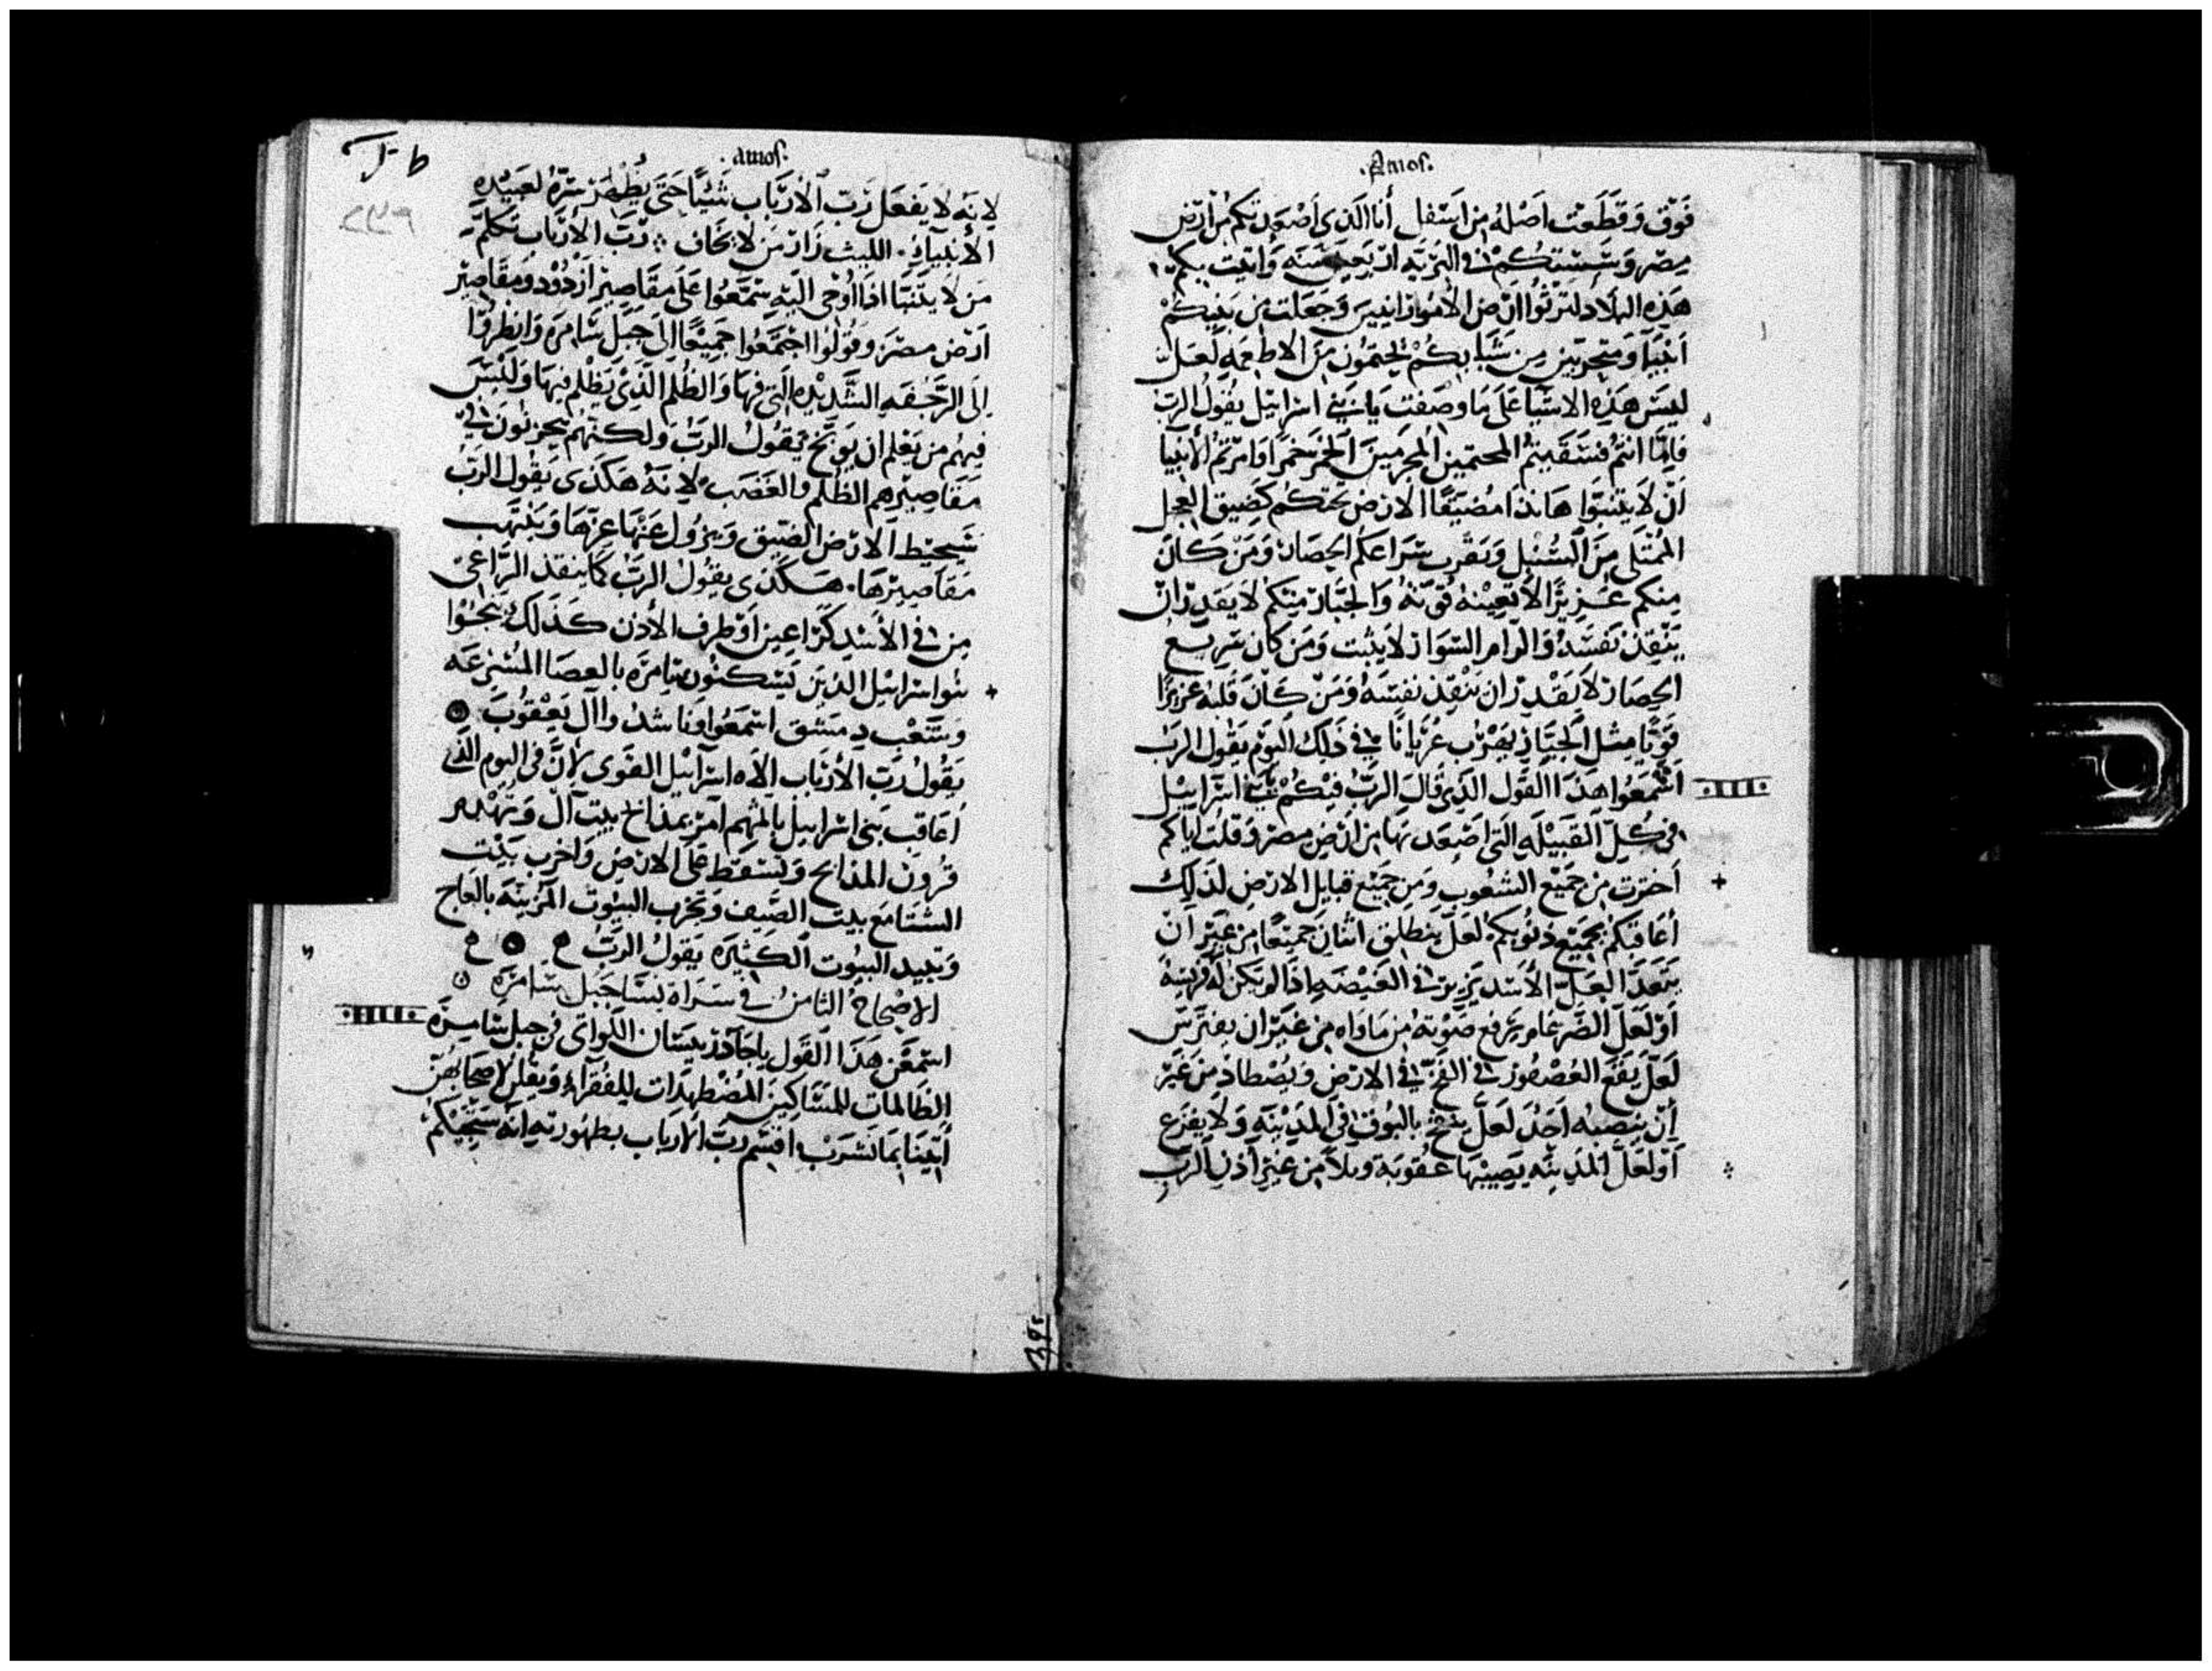 .Amos.
فوق وقطعت اصله من اسفل أنا الذي اصعدتكم من ارض
مصر وسستكم في البريه اربعين سنه واتيت بكم
هذه البلاد لترثوا ارض الامورانيين وجعلت من بنيكم
انبيا ومتحرمين من شبابكم يحتمون من الاطعمه لعل
ليس هذه الاشيا على ما وصفت يا بني اسرائيل يقول الرب
فاما انتم فسقيتم المحتمين المجرمين الخمر خمرا وامرتم الانبيا
ان لا يتنبوا هانذا مضيقا الارض تحتكم كضيق العجل
الممتلى من السنبل وتقرب سراعكم الحصار ومن كان
منكم عزيزا لا تعينه قوته والجبار منكم لا يقدر ان
ينقذ نفسه والرام السوار لا يثبت ومن كان سريع
الحصار لا يقدر ان ينقذ نفسه ومن كان قلبه عزيزا
قويا مثل الجبار يهرب عريانا في ذلك اليوم يقول الرب
اسمعوا هذا القول الذي قال الرب فيكم بني اسرايل
في كل القبيله التي اصعد بها من ارض مصر وقلت اياكم
اخترت من جميع الشعوب ومن جميع قبايل الارض لذلك
أعاقبكم بجميع ذنوبكم لعل ينطلق اثنان جميعا من غير ان
يتعدا لعل الأسد يزير في الغيضه اذا لم يكن له فريسه
او لعل الضرغام يرفع صوته من ماواه من غير ان يفترس
لعل يقع العصفور في الفخ في الارض ويصطاد من غير
ان ينصبه احد لعل ينفخ بالبوق في المدينه ولا يفزع
او لعل المدينه يصيبها عقوبة وبلا من غير اذن الرب
.amos.
لانه لا يفعل رب الارباب شئيا حتى يظهر سره لعبيده
الأنبياء. الليث زار من لا يخاف رب الارباب تكلم
من لا يتنبا اذا أوحى اليه سمعوا على مقاصير ازدود ومقاصير
ارض مصر وقولوا اجتمعوا جميعا الى جبل سامره وانظروا
الى الرجفه الشديده التي فيها والظلم الذي يظلم فيها وليس
فيهم من يعلم ان يوبخ يقول الرب ولكنهم يحزنون في
مقاصيرهم الظلم والغضب لانه هكذى يقول الرب
سيحيط الارض الضيق ويزول عنها عزها وينهب
مقاصيرها. هكذى يقول الرب كما ينقذ الراعي
من في الأسد كراعين او طرف الأذن كذلك ينجوا
بنوا اسرايل الذين يسكنون سامره بالعصا المسرعه
وسعب دمشق اسمعوا وناشدوا آل يعقوب
يقول رب الأرباب الاه اسرائيل القوى لأن في اليوم الذي
أعاقب بني اسرايل باثمهم آمر بمذابح بيت آل وتهدم
قرون المذابح وتسقط على الارض واخرب بيت
الشتا مع بيت الصيف وتخرب البيوت المزينه بالعاج
وتبيد البيوت الكثيره يقول الرب
الاصحاح الثامن في سراة نسا جبل سامره
استمعن هذا القول يا جآذر بيسان اللواتي في جبل سامره
الظالمات للمساكين المضطهدات للفقراء ويقلن لاصحابهن
أتينا بما نشرب اقسم رب الارباب بطهورته انه ستجيكم